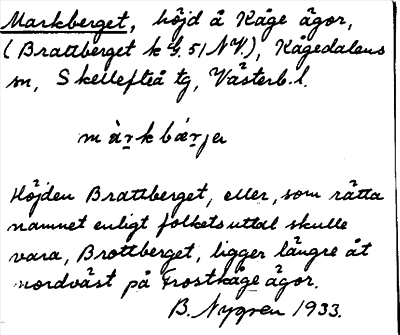 Markberget, höjd å Kåge ägor,
(Brattberget k bl. 51 NV.), Kågedalens
sn, Skellefteå tg, Västerb.l.
Höjden Brattberget, eller, som rätta
namnet enligt folkets uttal skulle
vara, Brottberget, ligger längre åt
nordväst på Frostkåge ägor.
B. Nygren 1933.